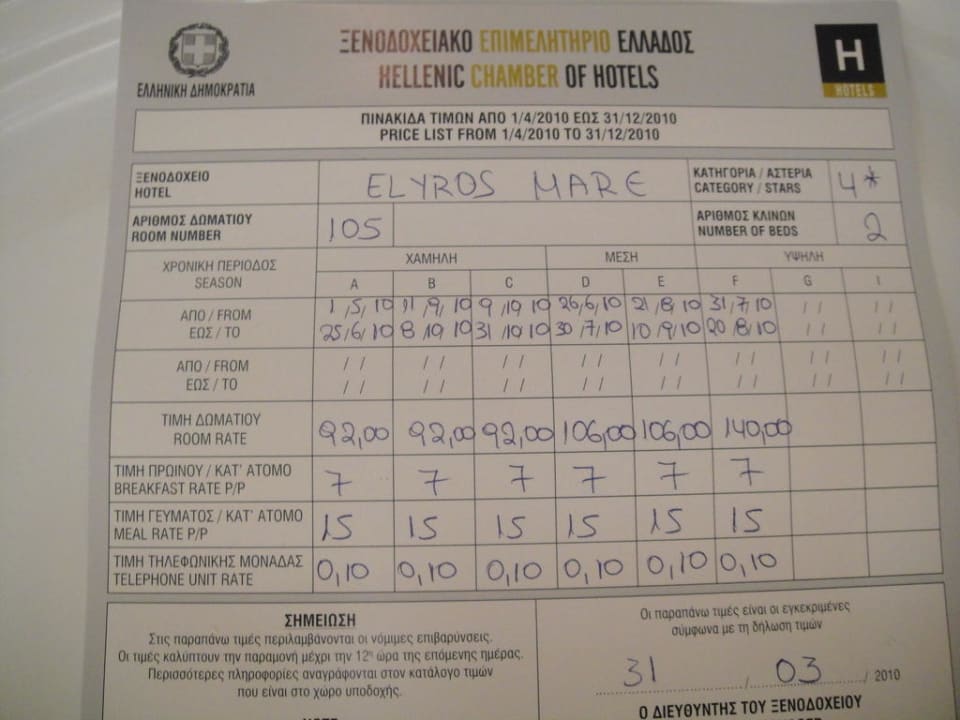 ΕΛΛΗΝΙΚΗ ΔΗΜΟΚΡΑΤΙΑ
ΞΕΝΟΔΟΧΕΙΑΚΟ ΕΠΙΜΕΛΗΤΗΡΙΟ ΕΛΛΑΔΟΣ
HELLENIC CHAMBER OF HOTELS
H
HOTELS
ΠΙΝΑΚΙΔΑ ΤΙΜΩΝ ΑΠΟ 1/4/2010 ΕΩΣ 31/12/2010
PRICE LIST FROM 1/4/2010 TO 31/12/2010
ΞΕΝΟΔΟΧΕΙΟ
HOTEL
ELYROS MARE
ΚΑΤΗΓΟΡΙΑ / ΑΣΤΕΡΙΑ
CATEGORY / STARS
4*
ΑΡΙΘΜΟΣ ΔΩΜΑΤΙΟΥ
ROOM NUMBER
105
ΑΡΙΘΜΟΣ ΚΛΙΝΩΝ
NUMBER OF BEDS
2
ΧΡΟΝΙΚΗ ΠΕΡΙΟΔΟΣ
SEASON
ΧΑΜΗΛΗ ΜΕΣΗ ΥΨΗΛΗ
A B C D E F G I
ΑΠΟ / FROM 1/5/10 11/9/10 9/10/10 26/6/10 21/8/10 31/7/10 / / / /
ΕΩΣ / TO 25/6/10 8/10/10 31/10/10 30/7/10 10/9/10 20/8/10 / / / /
ΑΠΟ / FROM / / / / / / / / / / / / / / / /
ΕΩΣ / TO / / / / / / / / / / / / / / / /
ΤΙΜΗ ΔΩΜΑΤΙΟΥ
ROOM RATE
92,00 92,00 92,00 106,00 106,00 140,00
ΤΙΜΗ ΠΡΩΙΝΟΥ / ΚΑΤ' ΑΤΟΜΟ
BREAKFAST RATE P/P
7 7 7 7 7 7
ΤΙΜΗ ΓΕΥΜΑΤΟΣ / ΚΑΤ' ΑΤΟΜΟ
MEAL RATE P/P
15 15 15 15 15 15
ΤΙΜΗ ΤΗΛΕΦΩΝΙΚΗΣ ΜΟΝΑΔΑΣ
TELEPHONE UNIT RATE
0,10 0,10 0,10 0,10 0,10 0,10
ΣΗΜΕΙΩΣΗ
Στις παραπάνω τιμές περιλαμβάνονται οι νόμιμες επιβαρύνσεις.
Οι τιμές καλύπτουν την παραμονή μέχρι την 12η ώρα της επόμενης ημέρας.
Περισσότερες πληροφορίες αναγράφονται στον κατάλογο τιμών
που είναι στο χώρο υποδοχής.
Οι παραπάνω τιμές είναι οι εγκεκριμένες
σύμφωνα με τη δήλωση τιμών
31 / 03 / 2010
Ο ΔΙΕΥΘΥΝΤΗΣ ΤΟΥ ΞΕΝΟΔΟΧΕΙΟΥ